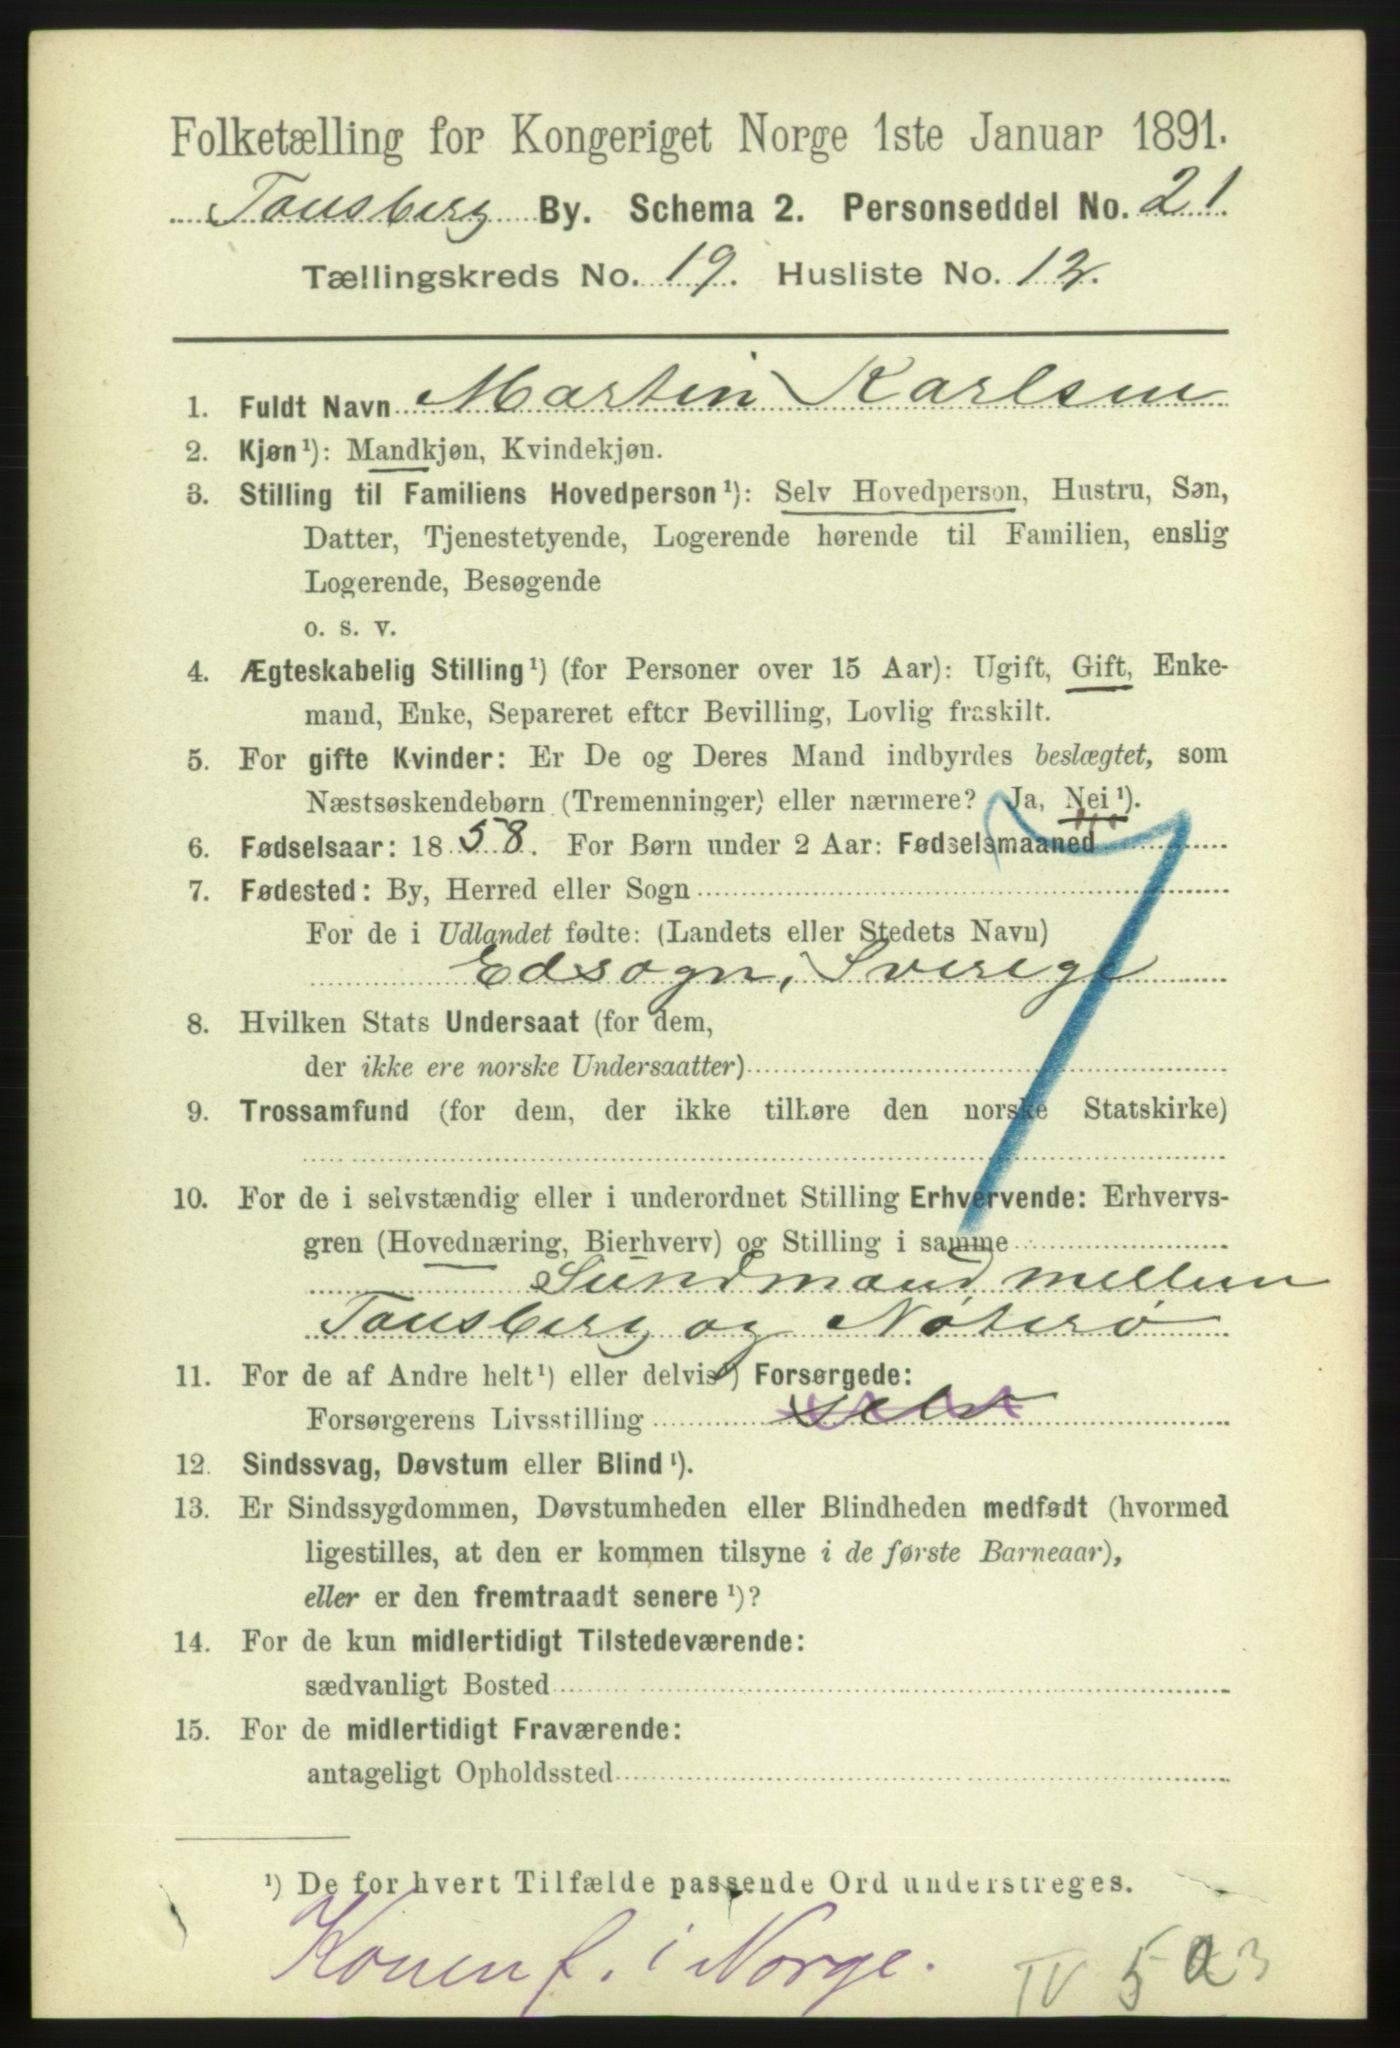 Folketælling for Kongeriget Norge 1ste Januar 1891.
Tønsberg By. Schema 2. Personseddel No. 21.
Tællingskreds No. 19. Husliste No. 12.
1. Fuldt Navn Martin Karlsen
2. Kjøn¹): Mandkjøn, Kvindekjøn.
3. Stilling til Familiens Hovedperson¹): Selv Hovedperson, Hustru, Søn,
Datter, Tjenestetyende, Logerende hørende til Familien, enslig
Logerende, Besøgende
o. s. v.
4. Ægteskabelig Stilling¹) (for Personer over 15 Aar): Ugift, Gift, Enke-
mand, Enke, Separeret efter Bevilling, Lovlig fraskilt.
5. For gifte Kvinder: Er De og Deres Mand indbyrdes beslægtet, som
Næstsøskendebørn (Tremenninger) eller nærmere? Ja, Nei¹).
6. Fødselsaar: 1858. For Børn under 2 Aar: Fødselsmaaned
7. Fødested: By, Herred eller Sogn
For de i Udlandet fødte: (Landets eller Stedets Navn)
Edsogn, Sverige
8. Hvilken Stats Undersaat (for dem,
der ikke ere norske Undersaatter)
9. Trossamfund (for dem, der ikke tilhøre den norske Statskirke)
10. For de i selvstændig eller i underordnet Stilling Erhvervende: Erhvervs-
gren (Hovednæring, Bierhverv) og Stilling i samme
Sundmand mellem
Tønsberg og Nøterø
11. For de af Andre helt¹) eller delvis¹) Forsørgede:
Forsørgerens Livsstilling selv
12. Sindssvag, Døvstum eller Blind¹).
13. Er Sindssygdommen, Døvstumheden eller Blindheden medfødt (hvormed
ligestilles, at den er kommen tilsyne i de første Barneaar),
eller er den fremtraadt senere¹)?
14. For de kun midlertidigt Tilstedeværende:
sædvanligt Bosted
15. For de midlertidigt Fraværende:
antageligt Opholdssted
¹) De for hvert Tilfælde passende Ord understreges.
Konen f. i Norge.
IV 5 a 3